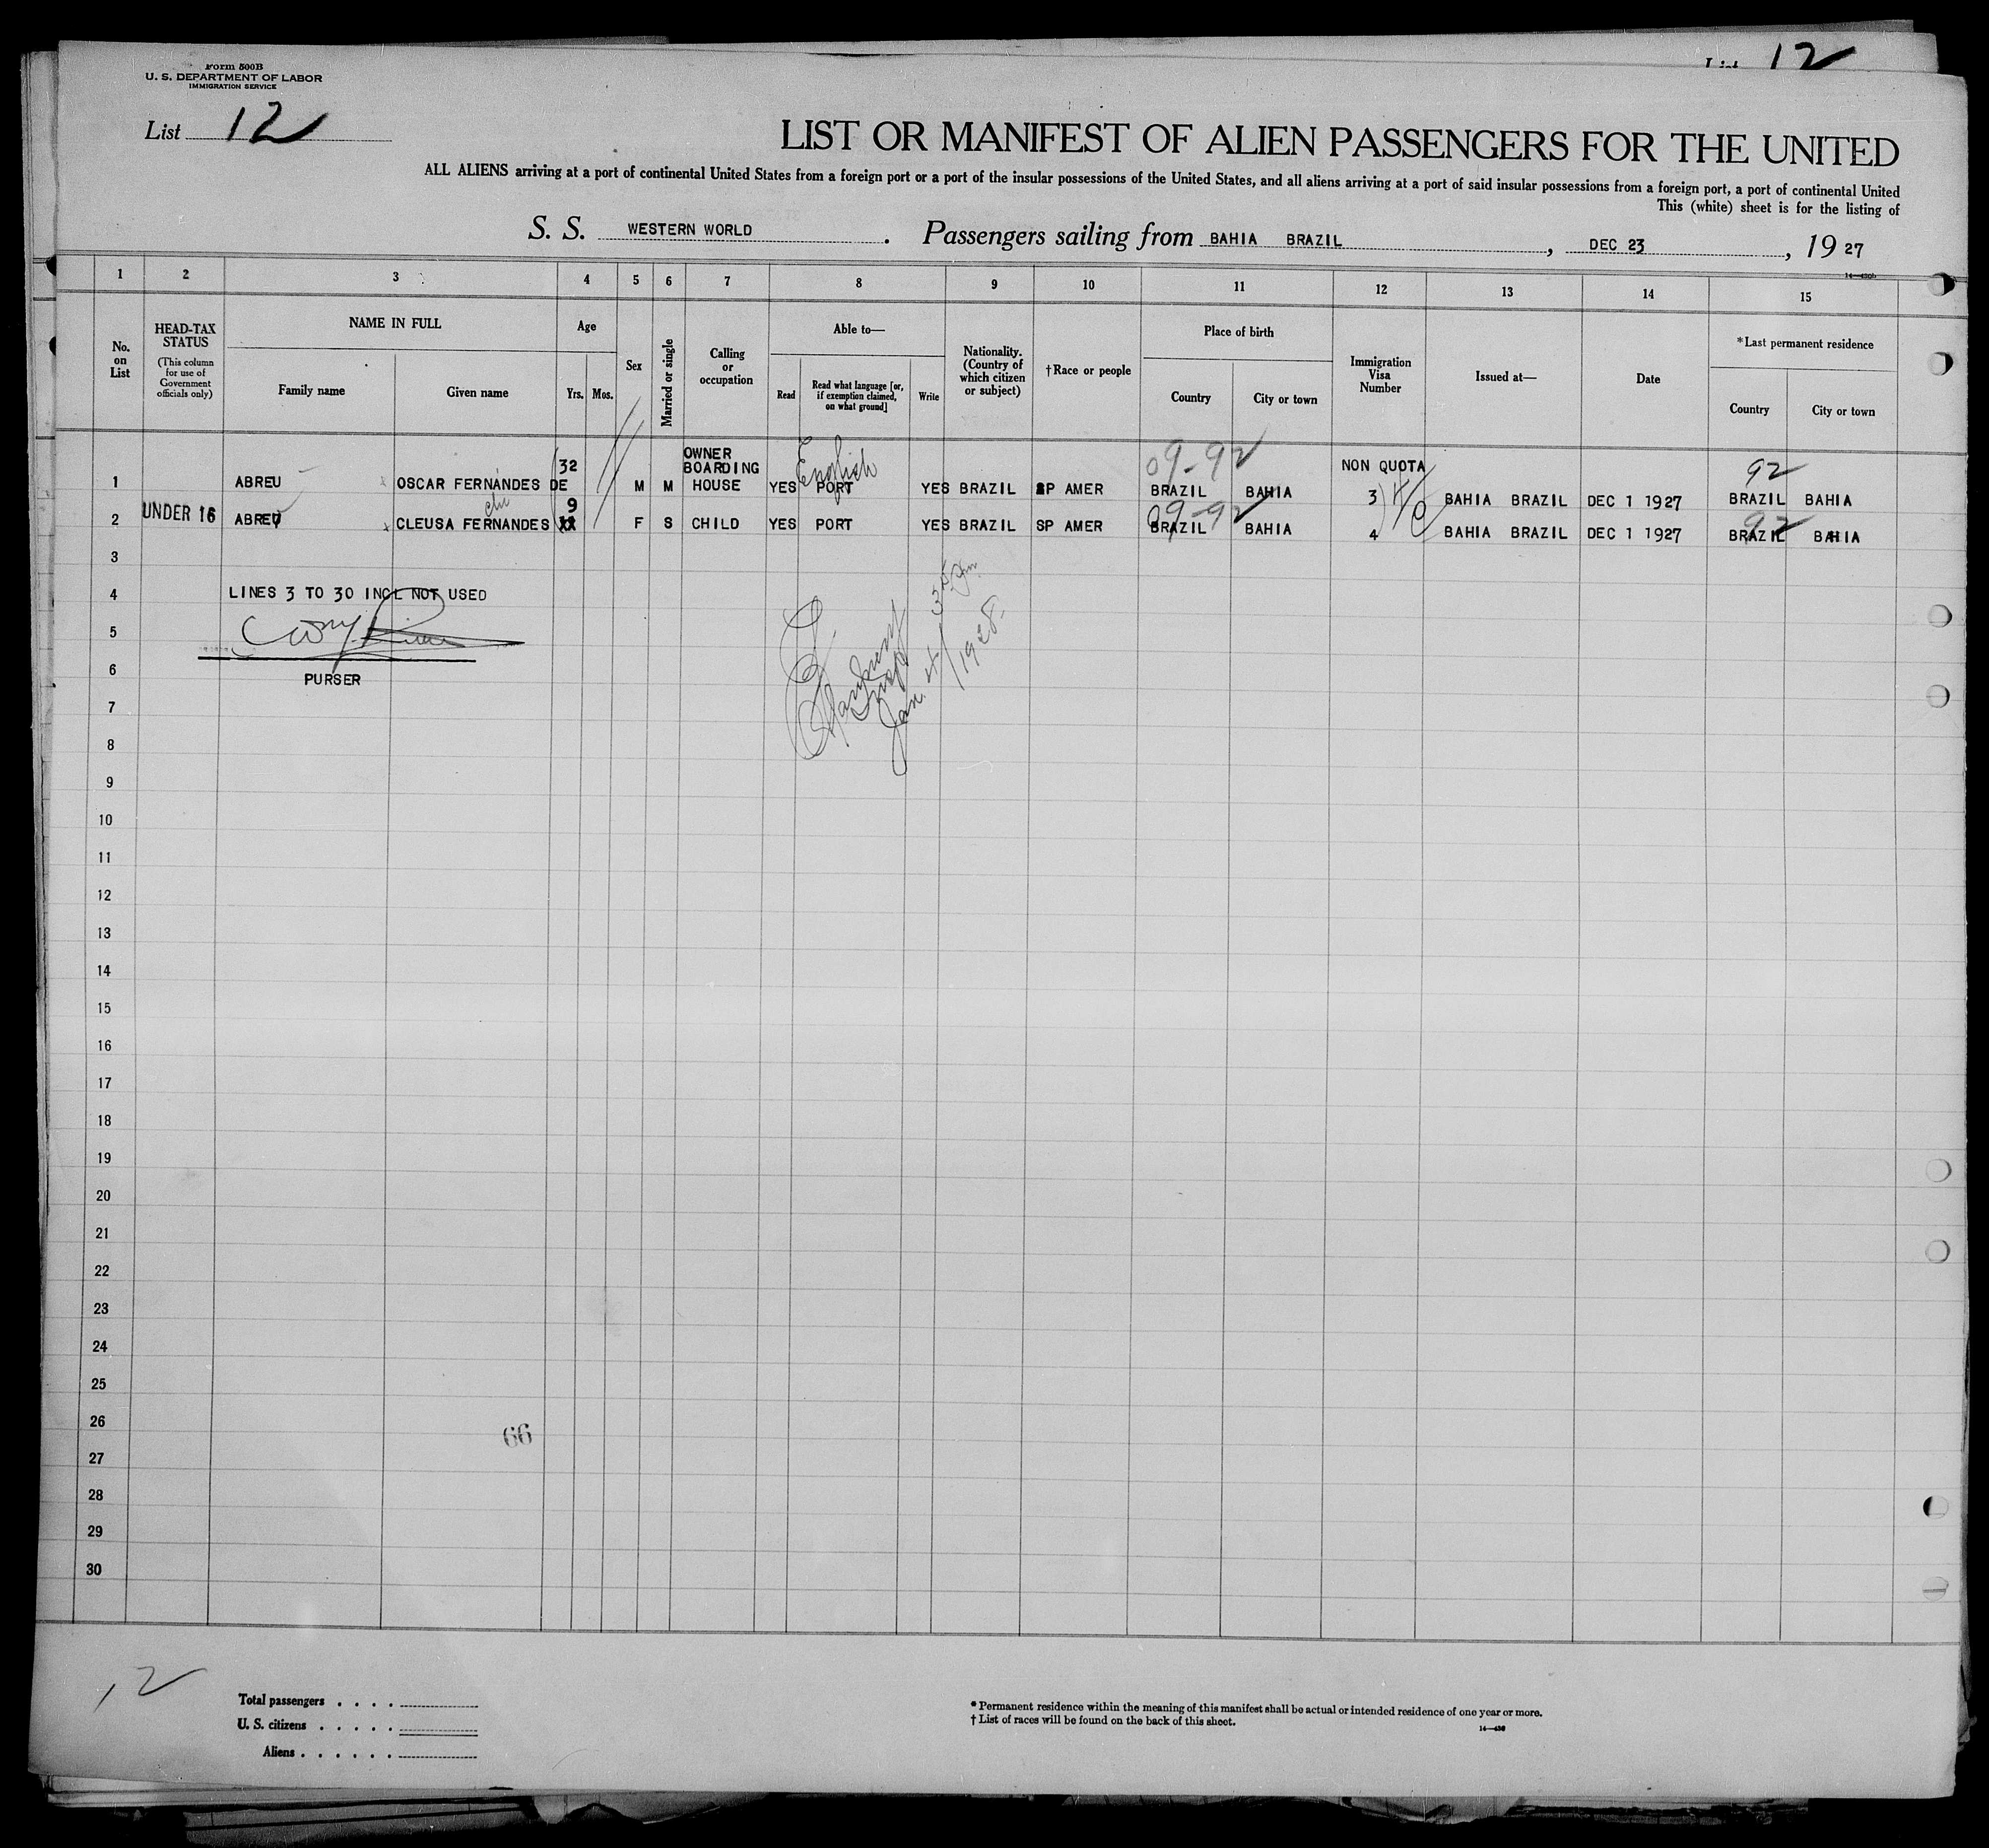 Form 500B
U. S. DEPARTMENT OF LABOR
IMMIGRATION SERVICE
List 12
List 12
LIST OR MANIFEST OF ALIEN PASSENGERS FOR THE UNITED
ALL ALIENS arriving at a port of continental United States from a foreign port or a port of the insular possessions of the United States, and all aliens arriving at a port of said insular possessions from a foreign port, a port of continental United
This (white) sheet is for the listing of
S. S. WESTERN WORLD . Passengers sailing from BAHIA BRAZIL , DEC 23 , 19 27
1 2 3 4 5 6 7 8 9 10 11 12 13 14 15
No. on List
HEAD-TAX STATUS (This column for use of Government officials only)
NAME IN FULL
Family name
Given name
Age
Yrs. Mos.
Sex
Married or single
Calling or occupation
Able to—
Read
Read what language [or, if exemption claimed, on what ground]
Write
Nationality. (Country of which citizen or subject)
†Race or people
Place of birth
Country
City or town
Immigration Visa Number
Issued at—
Date
*Last permanent residence
Country
City or town
English 09-92 NON QUOTA 92
1 ABREU OSCAR FERNANDES DE 32 M M OWNER BOARDING HOUSE YES PORT YES BRAZIL SP AMER BRAZIL BAHIA 3 BAHIA BRAZIL DEC 1 1927 BRAZIL BAHIA
09-92 92
2 UNDER 16 ABREU CLEUSA FERNANDES 9 F S CHILD YES PORT YES BRAZIL SP AMER BRAZIL BAHIA 4 BAHIA BRAZIL DEC 1 1927 BRAZIL BAHIA
3
4 LINES 3 TO 30 INCL NOT USED
5
6 PURSER
Jan. 4/1928
7
8
9
10
11
12
13
14
15
16
17
18
19
20
21
22
23
24
25
26
66
27
28
29
30
12
Total passengers . . . .
U. S. citizens . . . . .
Aliens . . . . . .
* Permanent residence within the meaning of this manifest shall be actual or intended residence of one year or more.
† List of races will be found on the back of this sheet.